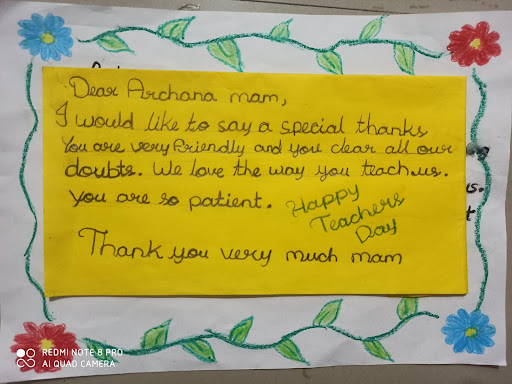 Dear Archana mam,
I would like to say a special thanks
You are very friendly and you clear all our
doubts. We love the way you teach us.
You are so patient.
Happy
Teachers
Day
Thank you very much mam
REDMI NOTE 8 PRO
AI QUAD CAMERA